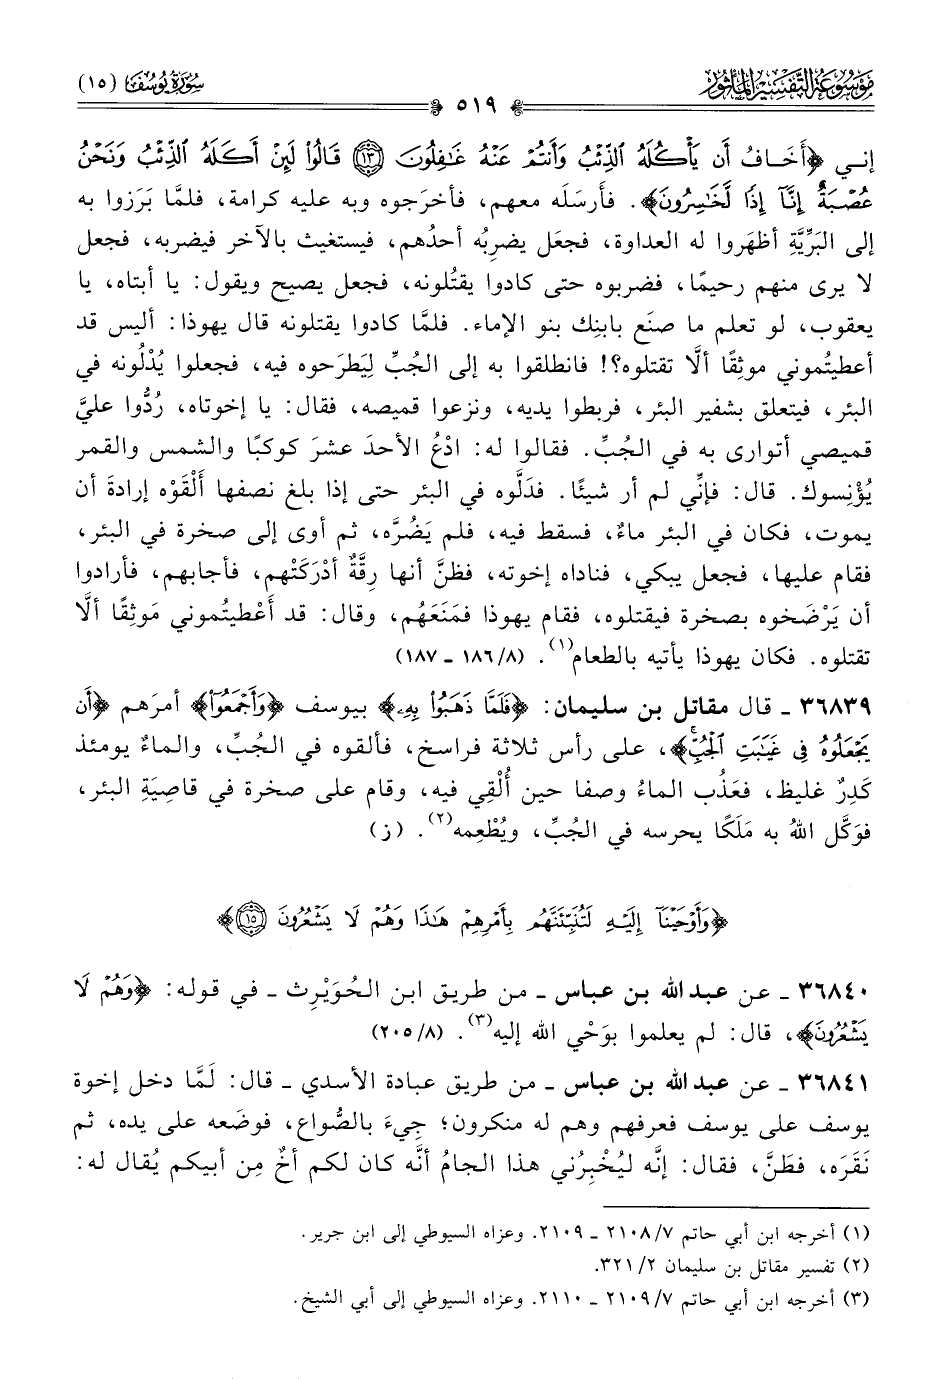 موسوعة التفسير المأثور
سورة يوسف (١٥)
٥١٩
إني ﴿أَخَافُ أَن يَأْكُلَهُ الذِّئْبُ وَأَنتُمْ عَنْهُ غَافِلُونَ ١٣ قَالُوا لَئِنْ أَكَلَهُ الذِّئْبُ وَنَحْنُ
عُصْبَةٌ إِنَّا إِذًا لَّخَاسِرُونَ﴾. فأرسَلَه معهم، فأخرجوه وبه عليه كرامة، فلمَّا بَرَزوا به
إلى البَرِّيَّةِ أظهَروا له العداوة، فجعَل يضرِبُه أحدُهم، فيستغيث بالآخر فيضربه، فجعل
لا يرى منهم رحيمًا، فضربوه حتى كادوا يقتُلونه، فجعل يصيح ويقول: يا أبتاه، يا
يعقوب، لو تعلم ما صنَع بابنِك بنو الإماء. فلمَّا كادوا يقتلونه قال يهوذا: أليس قد
أعطيتُموني موثِقًا ألَّا تقتلوه؟! فانطلقوا به إلى الجُبِّ لِيَطرَحوه فيه، فجعلوا يُدْلُونه في
البئر، فيتعلق بشفير البئر، فربطوا يديه، ونزعوا قميصه، فقال: يا إخوتاه، رُدُّوا عليَّ
قميصي أتوارى به في الجُبِّ. فقالوا له: ادْعُ الأحدَ عشرَ كوكبًا والشمس والقمر
يُؤْنِسوك. قال: فإنِّي لم أر شيئًا. فدَلَّوه في البئر حتى إذا بلغ نصفها أَلْقَوْه إرادةَ أن
يموت، فكان في البئر ماءٌ، فسقط فيه، فلم يَضُرَّه، ثم أوى إلى صخرة في البئر،
فقام عليها، فجعل يبكي، فناداه إخوته، فظنَّ أنها رِقَّةٌ أدْرَكَتْهم، فأجابهم، فأرادوا
أن يَرْضَخوه بصخرة فيقتلوه، فقام يهوذا فمَنَعَهُم، وقال: قد أَعْطيتُموني مَوثِقًا ألَّا
تقتلوه. فكان يهوذا يأتيه بالطعام(١). (٨/ ١٨٦ ـ ١٨٧)
٣٦٨٣٩ ـ قال مقاتل بن سليمان: ﴿فَلَمَّا ذَهَبُوا بِهِ﴾ بيوسف ﴿وَأَجْمَعُوا﴾ أمرَهم ﴿أَن
يَجْعَلُوهُ فِي غَيَابَتِ الْجُبِّ﴾، على رأس ثلاثة فراسخ، فألقوه في الجُبِّ، والماءُ يومئذ
كَدِرٌ غليظ، فعَذُب الماءُ وصفا حين أُلْقِي فيه، وقام على صخرة في قاصِيَةِ البئر،
فوَكَّل اللهُ به مَلَكًا يحرسه في الجُبِّ، ويُطْعِمه(٢). (ز)
﴿وَأَوْحَيْنَا إِلَيْهِ لَتُنَبِّئَنَّهُم بِأَمْرِهِمْ هَذَا وَهُمْ لَا يَشْعُرُونَ ١٥﴾
٣٦٨٤٠ ـ عن عبد الله بن عباس ـ من طريق ابن الحُوَيْرِث ـ في قوله: ﴿وَهُمْ لَا
يَشْعُرُونَ﴾، قال: لم يعلموا بوَحْيِ الله إليه(٣). (٨/ ٢٠٥)
٣٦٨٤١ ـ عن عبد الله بن عباس ـ من طريق عبادة الأسدي ـ قال: لَمَّا دخل إخوة
يوسف على يوسف فعرفهم وهم له منكرون؛ جِيءَ بالصُّواع، فوضَعه على يده، ثم
نَقَرَه، فطَنَّ، فقال: إنَّه ليُخْبِرُني هذا الجامُ أنَّه كان لكم أخٌ مِن أبيكم يُقال له:
(١) أخرجه ابن أبي حاتم ٧/ ٢١٠٨ ـ ٢١٠٩. وعزاه السيوطي إلى ابن جرير.
(٢) تفسير مقاتل بن سليمان ٢/ ٣٢١.
(٣) أخرجه ابن أبي حاتم ٧/ ٢١٠٩ ـ ٢١١٠. وعزاه السيوطي إلى أبي الشيخ.